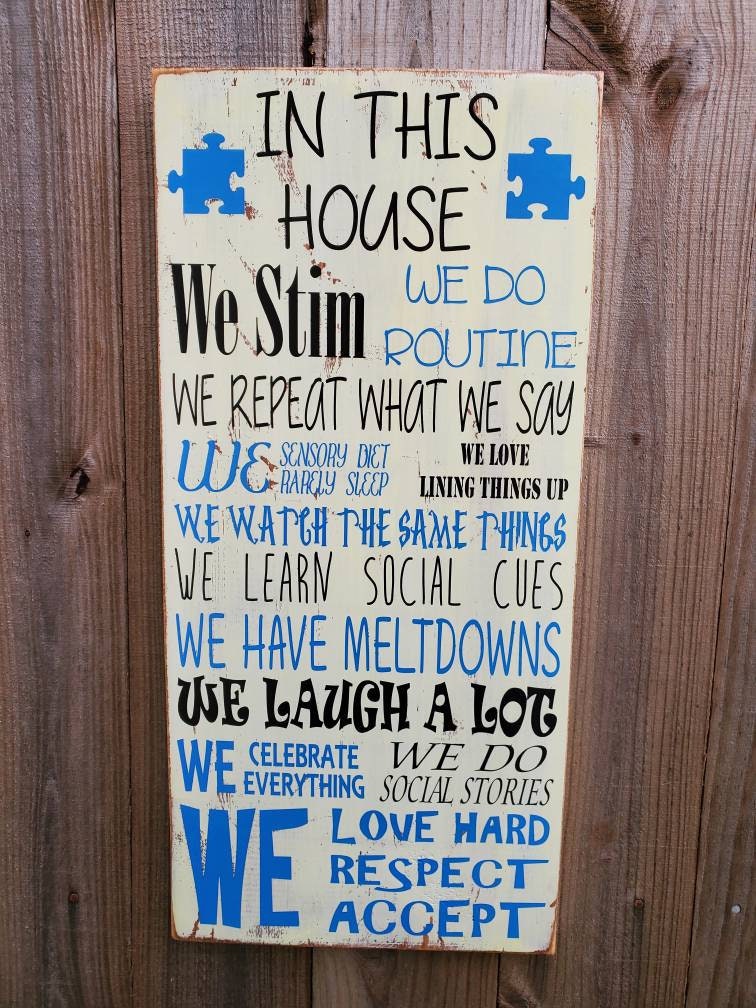 IN THIS
HOUSE
We Stim
WE DO
ROUTINE
WE REPEAT WHAT WE SAY
WE SENSORY DIET
RARELY SLEEP
WE LOVE
LINING THINGS UP
WE WATCH THE SAME THINGS
WE LEARN SOCIAL CUES
WE HAVE MELTDOWNS
WE LAUGH A LOT
WE CELEBRATE
EVERYTHING
WE DO
SOCIAL STORIES
WE LOVE HARD
RESPECT
ACCEPT